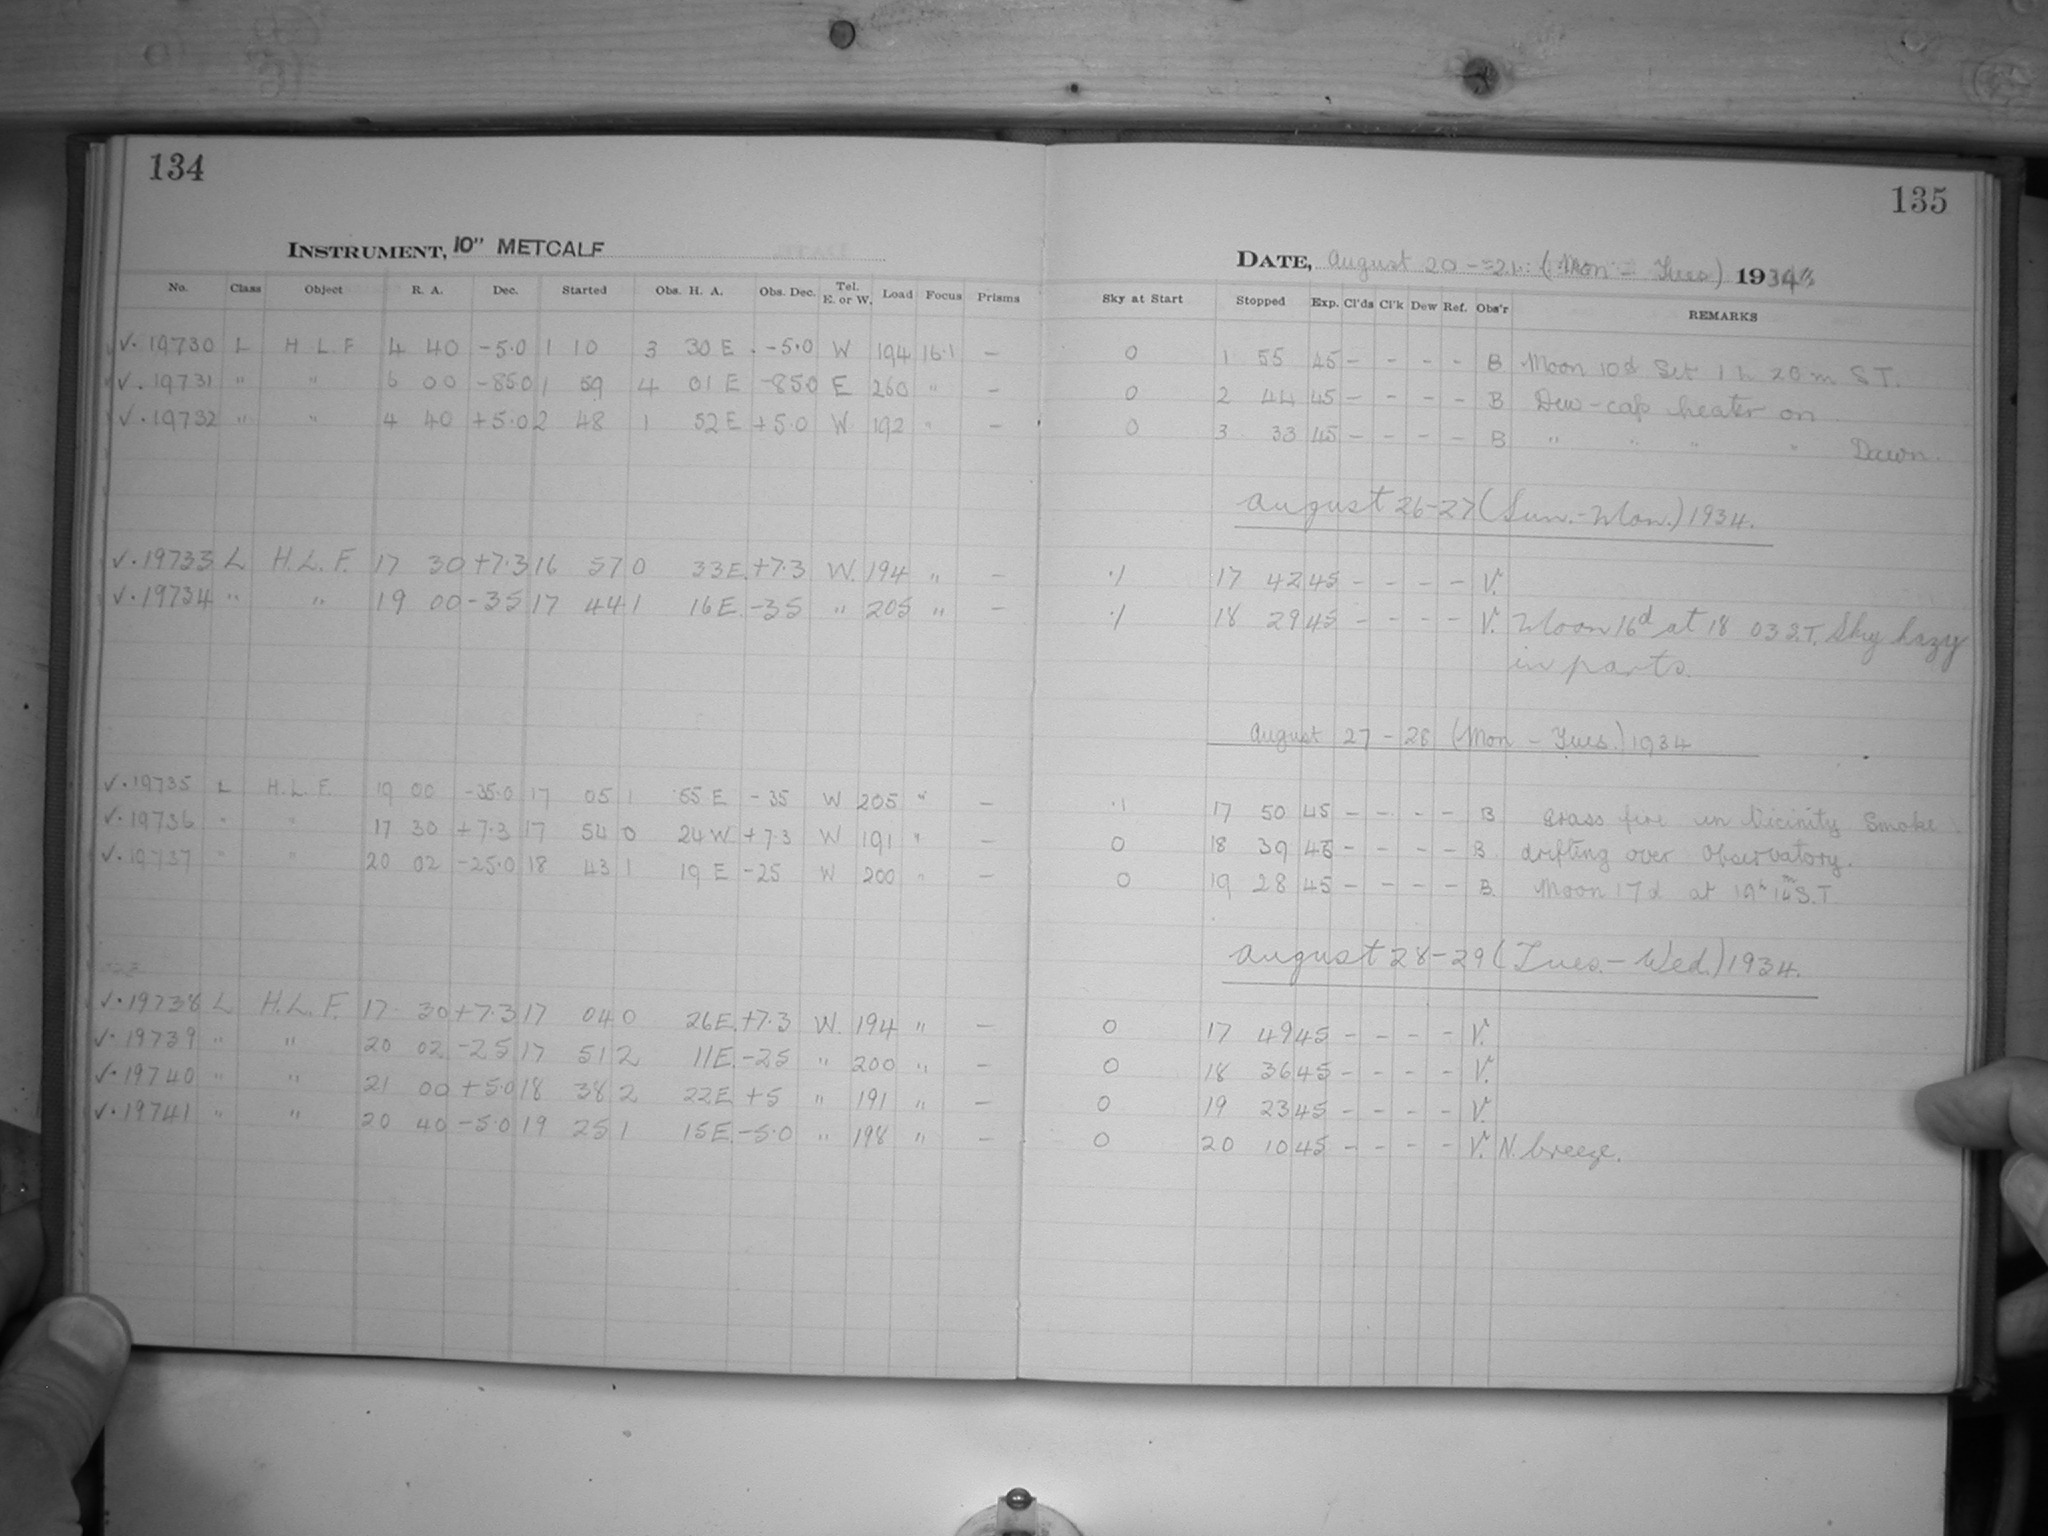 134
INSTRUMENT, 10" METCALF
No. Class Object R. A. Dec. Started Obs. H. A. Obs. Dec. Tel. E. or W. Load Focus Prisms
√. 19730 L H L F 4 40 -5.0 1 10 3 30 E -5.0 W 194 16.1 –
√. 19731 " " 6 00 -85.0 1 59 4 01 E -85.0 E 260 " –
√. 19732 " " 4 40 +5.0 2 48 1 52 E +5.0 W 192 " –
√. 19733 L H.L.F. 17 30 +7.3 16 57 0 33 E. +7.3 W. 194 " –
√. 19734 " " 19 00 -35 17 44 1 16 E. -35 " 205 " –
√. 19735 L H.L.F. 19 00 -35.0 17 05 1 55 E -35 W 205 " –
√. 19736 " " 17 30 +7.3 17 54 0 24 W. +7.3 W 191 " –
√. 19737 " " 20 02 -25.0 18 43 1 19 E -25 W 200 " –
√. 19738 L H.L.F. 17 30 +7.3 17 04 0 26 E. +7.3 W. 194 " –
√. 19739 " " 20 02 -25 17 51 2 11 E. -25 " 200 " –
√. 19740 " " 21 00 +5.0 18 38 2 22 E +5 " 191 " –
√. 19741 " " 20 40 -5.0 19 25 1 15 E. -5.0 " 198 " –
135
DATE, August 20 - 21. (Mon - Tues) 1934
Sky at Start Stopped Exp. Cl'ds Cl'k Dew Ref. Obs'r REMARKS
0 1 55 45 – – – – B Moon 10d Set 1 h 20 m S T.
0 2 44 45 – – – – B Dew-cap heater on
0 3 33 45 – – – – B " " " " Dawn.
August 26-27 (Sun.-Mon.) 1934.
.1 17 42 45 – – – – V.
.1 18 29 45 – – – – V. Moon 16d at 18 03 S.T. Sky hazy
in parts.
August 27 - 28 (Mon - Tues.) 1934
.1 17 50 45 – – – – B Grass fire in Vicinity Smoke
0 18 39 45 – – – – B drifting over Observatory.
0 19 28 45 – – – – B. Moon 17d at 19h 14m S.T
August 28-29 (Tues.-Wed.) 1934.
0 17 49 45 – – – – V.
0 18 36 45 – – – – V.
0 19 23 45 – – – – V.
0 20 10 45 – – – – V. N. breeze.